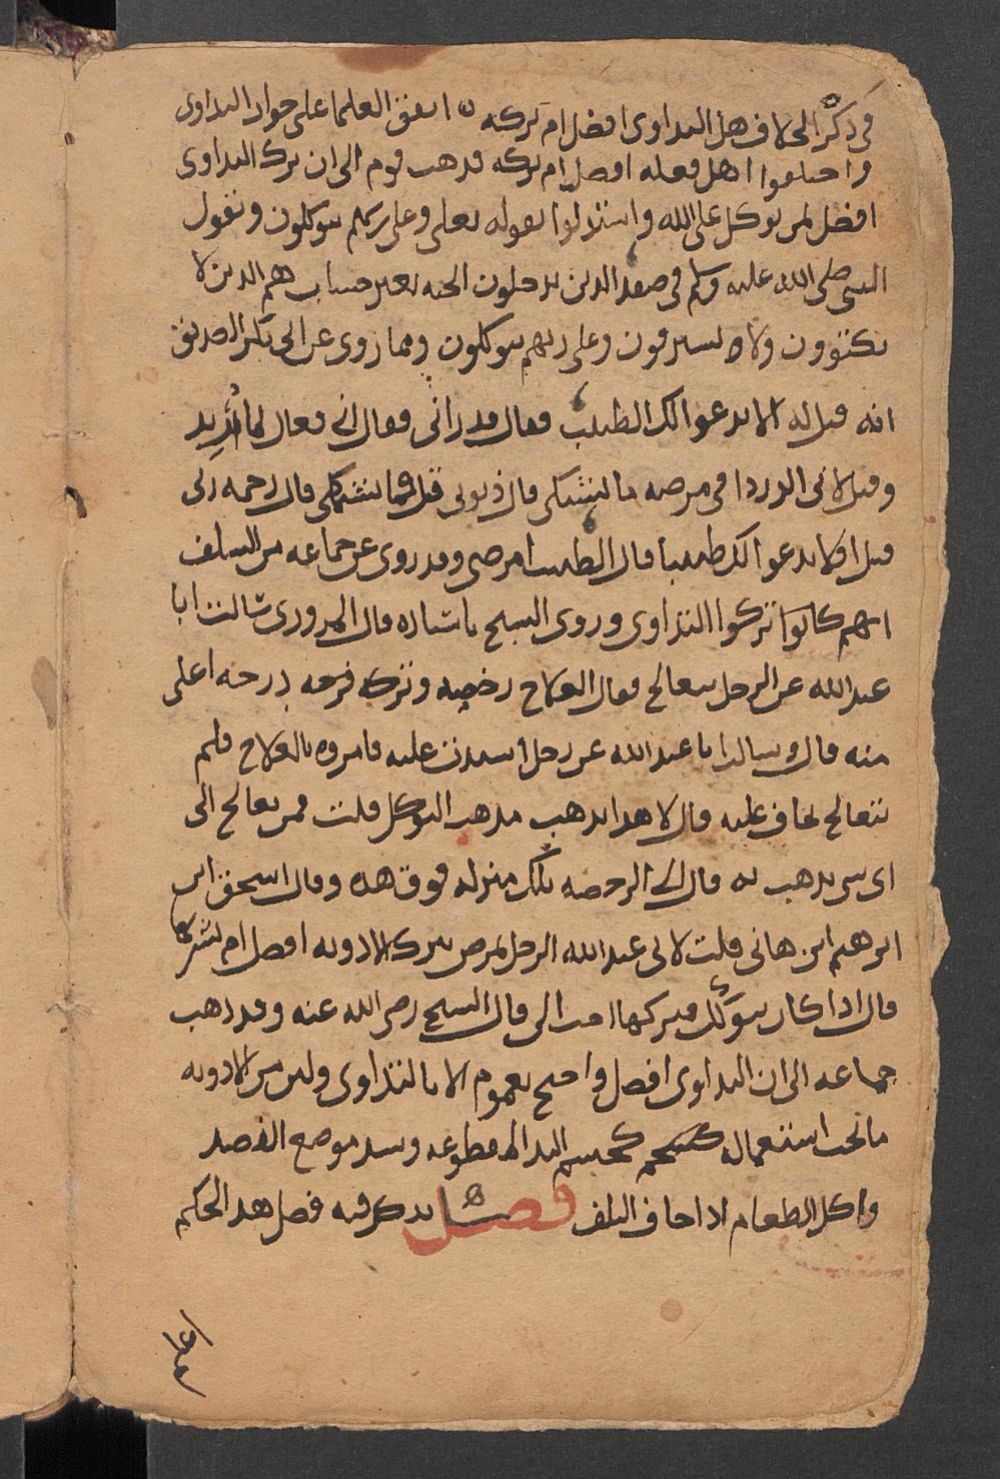 في ذكر الخلاف هل التداوي افضل ام تركه ه اتفق العلما على جواز التداوي
واختلفوا هل فعله افضل ام تركه فذهب قوم الى ان ترك التداوي
افضل لمن توكل على الله واستدلوا بقوله تعلى وعلى ربهم يتوكلون وبقول
النبي صلى الله عليه وسلم في صفة الذين يدخلون الجنة بغير حساب هم الذين لا
يكتوون ولا يسترقون وعلى ربهم يتوكلون وبما روي عن ابي بكر الصديق
انه قيل له الا ندعو لك الطبيب فقال قد راني فقال اني فعال لما أُريد
وقيل لابي الدردا في مرضه ما تشتكي قال ذنوبي قيل فما تشتهي قال رحمة ربي
قيل افلا ندعو لك طبيبا قال الطبيب امرضني وقد روي عن جماعة من السلف
انهم كانوا تركوا التداوي وروى الشيخ باسناده قال المروذي سالت ابا
عبد الله عن الرجل يتعالج فقال العلاج رخصه وتركه درجه اعلى
منه قال وسالت ابا عبد الله عن رجل اشتدت عليه فامروه بالعلاج فلم
يتعالج يخاف عليه قال لا هذا يذهب مذهب التوكل قلت فمن يعالج الى
اي شي يذهب به قال الى الرخصه تلك منزله فوق هذه وقال اسحق ابن
ابرهيم ابن هاني قلت لابي عبد الله الرجل يمرض يترك الادويه افضل ام يشربها
قال اذا كان يتوكل فيتركها احب الي قال الشيخ رضي الله عنه وقد ذهب
جماعه الى ان التداوي افضل واحتج بعموم الامر بالتداوي وليس من الادويه
ما يجب استعماله كحسم اليد المقطوعه وسد موضع الفصد
واكل الطعام اذا خاف التلف فصل يذكر فيه فصل هذا الحكم